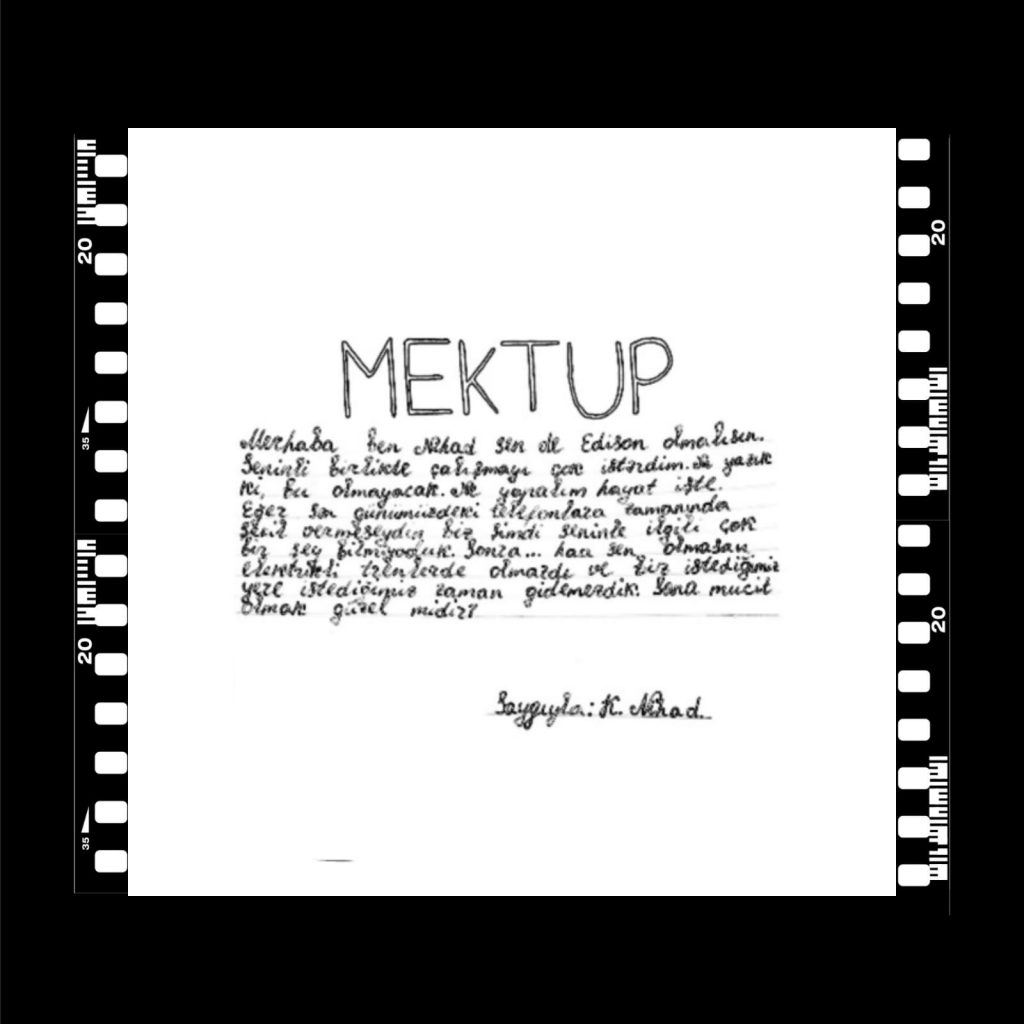 MEKTUP
Merhaba ben Nihad sen de Edison olmalısın.
Seninli birlikte çalışmayı çok isterdim. Ne yazık
ki, bu olmayacak. Ne yapalım hayat işte.
Eğer sen günümüzdeki telefonlara zamanında
şekil vermeseydin biz şimdi seninle ilgili çok
bir şey bilmiyoduk. Sonra... haa sen olmasan
elektrikli trenlerde olmazdı ve biz istediğimiz
yere istediğimiz zaman gidemezdik. Sana mucit
olmak güzel midir?
Saygıyla: K. Nihad.
20
35
20
35
20
20